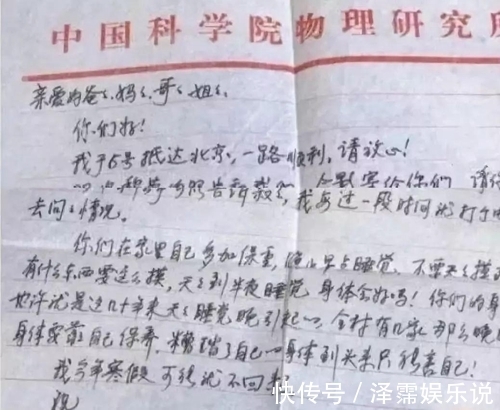 中国科学院物理研究所
亲爱的爸々、妈々、哥々、姐々:
你们好!
我于5号抵达北京,一路顺利,请放心!
告诉 寄给你们, 请你
去问々情况。 我每过一段时间 打
你们在家里自己多加保重, 早点睡觉, 不要天々摸
有什么东西要这么摸,天々到半夜睡觉,身体会好吗!你们的身
也许就是这几十年来天々睡觉晚引起 全村有几家那么晚
身体要靠自己保养, 糟蹋了自己 身体到头来只能害自己!
我今年寒假可能就不回
祝
快传号/泽霈娱乐说